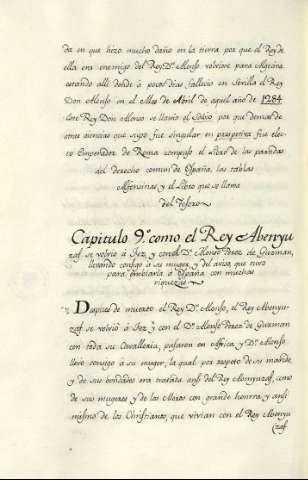 da en que hizo mucho daño en la tierra por que el Rey de
ella era enemigo del Rey Dn. Alonso volviose para Algecira
estando alli donde à pocos dias fallecio en Sevilla el Rey
Don Alonso en el Mes de Abril de aquel año de 1284
este Rey Don Alonso se llamo el Sabio por que demas de
otras ciencias que supo fue singular en prespetiva fue elec-
to Emperador de Roma compuso el Libro de las partidas
del derecho comun de España, las tablas
Alfonsinas, y el Libro que se llama
del Tesoro
Capitulo 9.º como el Rey Abenyu
zaf se volvió à Fez, y con el Dn. Alonso Perez de Guzman,
llevando consigo à su muger, y del aviso, que tuvo
para embiarla à España con muchas
riquezas
Despues de muerto el Rey Dn. Alonso, el Rey Abenyu-
zaf se volvió à Fez y con el Dn. Alonso Perez de Guzman
con toda su Cavalleria, pasaron en Africa, y Dn. Alonso
llevó consigo à su muger, la qual por respeto de su marido
y de sus bondades era tratada ansi del Rey Abenyuzaf, como
de sus mugeres y de los Moros con grande honrra, y ansi
mismo de los Christianos, que vivian con el Rey Abenyu
(zaf.